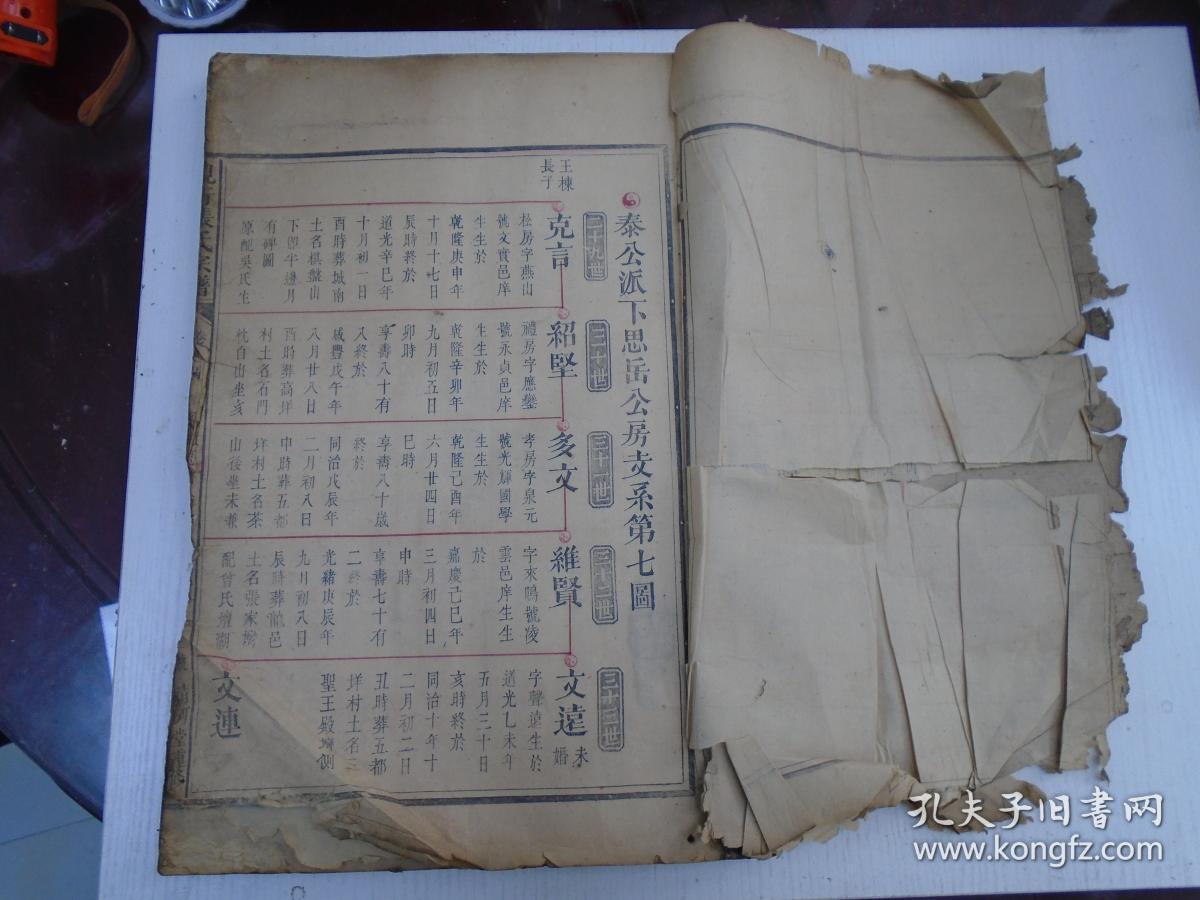 泰公派下思岳公房支系第七圖
二十九世
王棟
長子
克言
松房字燕山
號文實邑庠
生生於
乾隆庚申年
十月十七日
辰時終於
道光辛巳年
十月初一日
酉時葬城南
土名棋盤山
下卽牛邊月
有碑圖
原配吳氏生
三十世
紹堅
禮房字應鑾
號永貞邑庠
生生於
乾隆辛卯年
九月初五日
卯時
享壽八十有
八終於
咸豐戊午年
八月廿八日
酉時葬高坪
村土名石門
枕自山坐亥
三十一世
多文
孝房字泉元
號光輝國學
生生於
乾隆己酉年
六月廿四日
巳時
享壽八十歲
終於
同治戊辰年
二月初八日
申時葬五都
坪村土名茶
山後坐未兼
三十二世
維賢
字來鳴號凌
雲邑庠生生
於
嘉慶己巳年
三月初四日
申時
享壽七十有
二終於
光緒庚辰年
九月初八日
辰時葬邑
土名張家塝
配曾氏壇湖
三十三世
文遠
未
婚
字聲遠生於
道光乚未年
五月三十日
亥時終於
同治十年十
二月初二日
丑時葬五都
坪村土名三
聖王殿壩側
文連
氏宗譜
孔夫子旧书网
www.kongfz.com